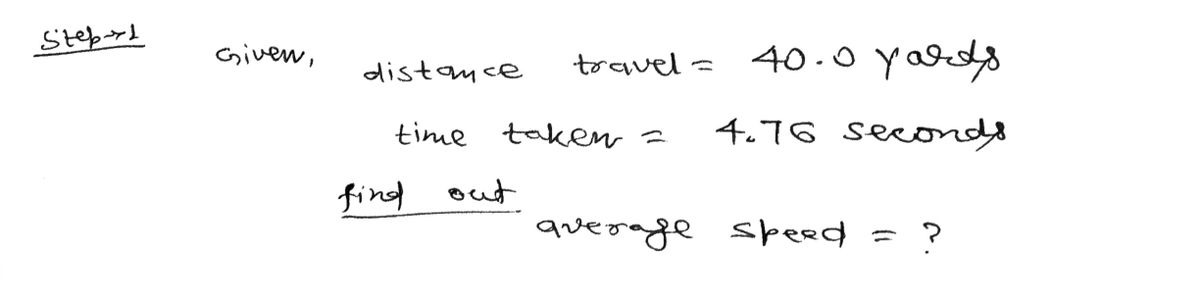 Step→1
Given, distance travel = 40.0 yards
time taken = 4.76 seconds
find out
average speed = ?